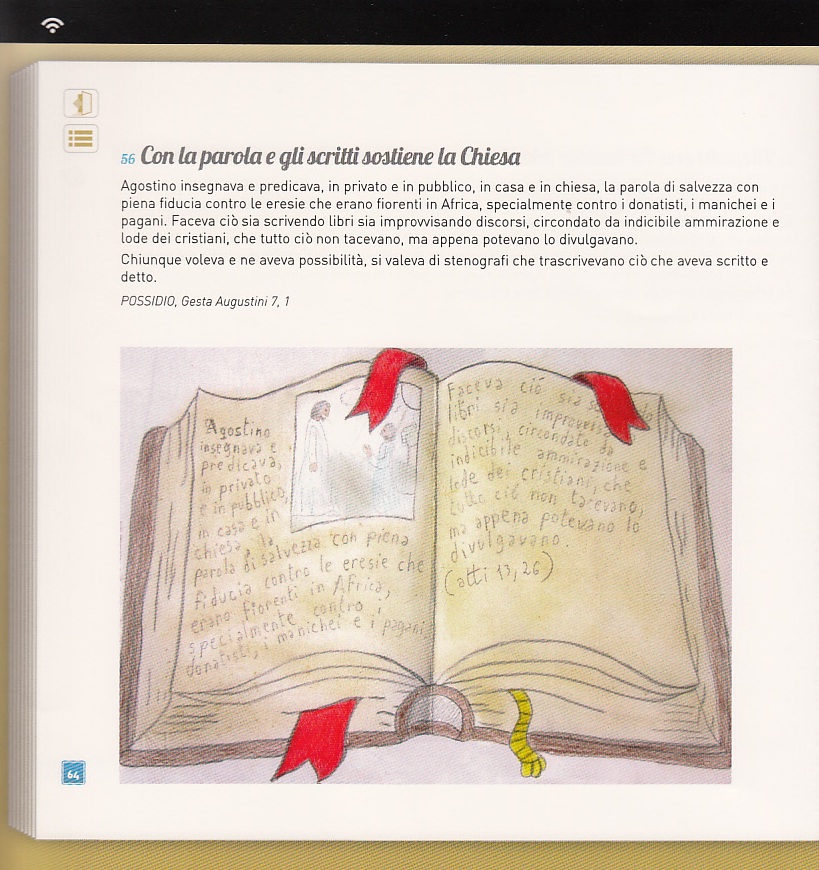 56 Con la parola e gli scritti sostiene la Chiesa
Agostino insegnava e predicava, in privato e in pubblico, in casa e in chiesa, la parola di salvezza con
piena fiducia contro le eresie che erano fiorenti in Africa, specialmente contro i donatisti, i manichei e i
pagani. Faceva ciò sia scrivendo libri sia improvvisando discorsi, circondato da indicibile ammirazione e
lode dei cristiani, che tutto ciò non tacevano, ma appena potevano lo divulgavano.
Chiunque voleva e ne aveva possibilità, si valeva di stenografi che trascrivevano ciò che aveva scritto e
detto.
POSSIDIO, Gesta Augustini 7, 1
Agostino
insegnava e
predicava,
in privato
e in pubblico,
in casa e in
chiesa, la
parola di salvezza con piena
fiducia contro le eresie che
erano fiorenti in Africa,
specialmente contro i
donatisti, i manichei e i pagani
Faceva ciò sia
libri sia
discorsi, circondato da
indicibile ammirazione e
lode dei cristiani, che
tutto ciò non tacevano,
ma appena potevano lo
divulgavano.
(atti 13,26)
64